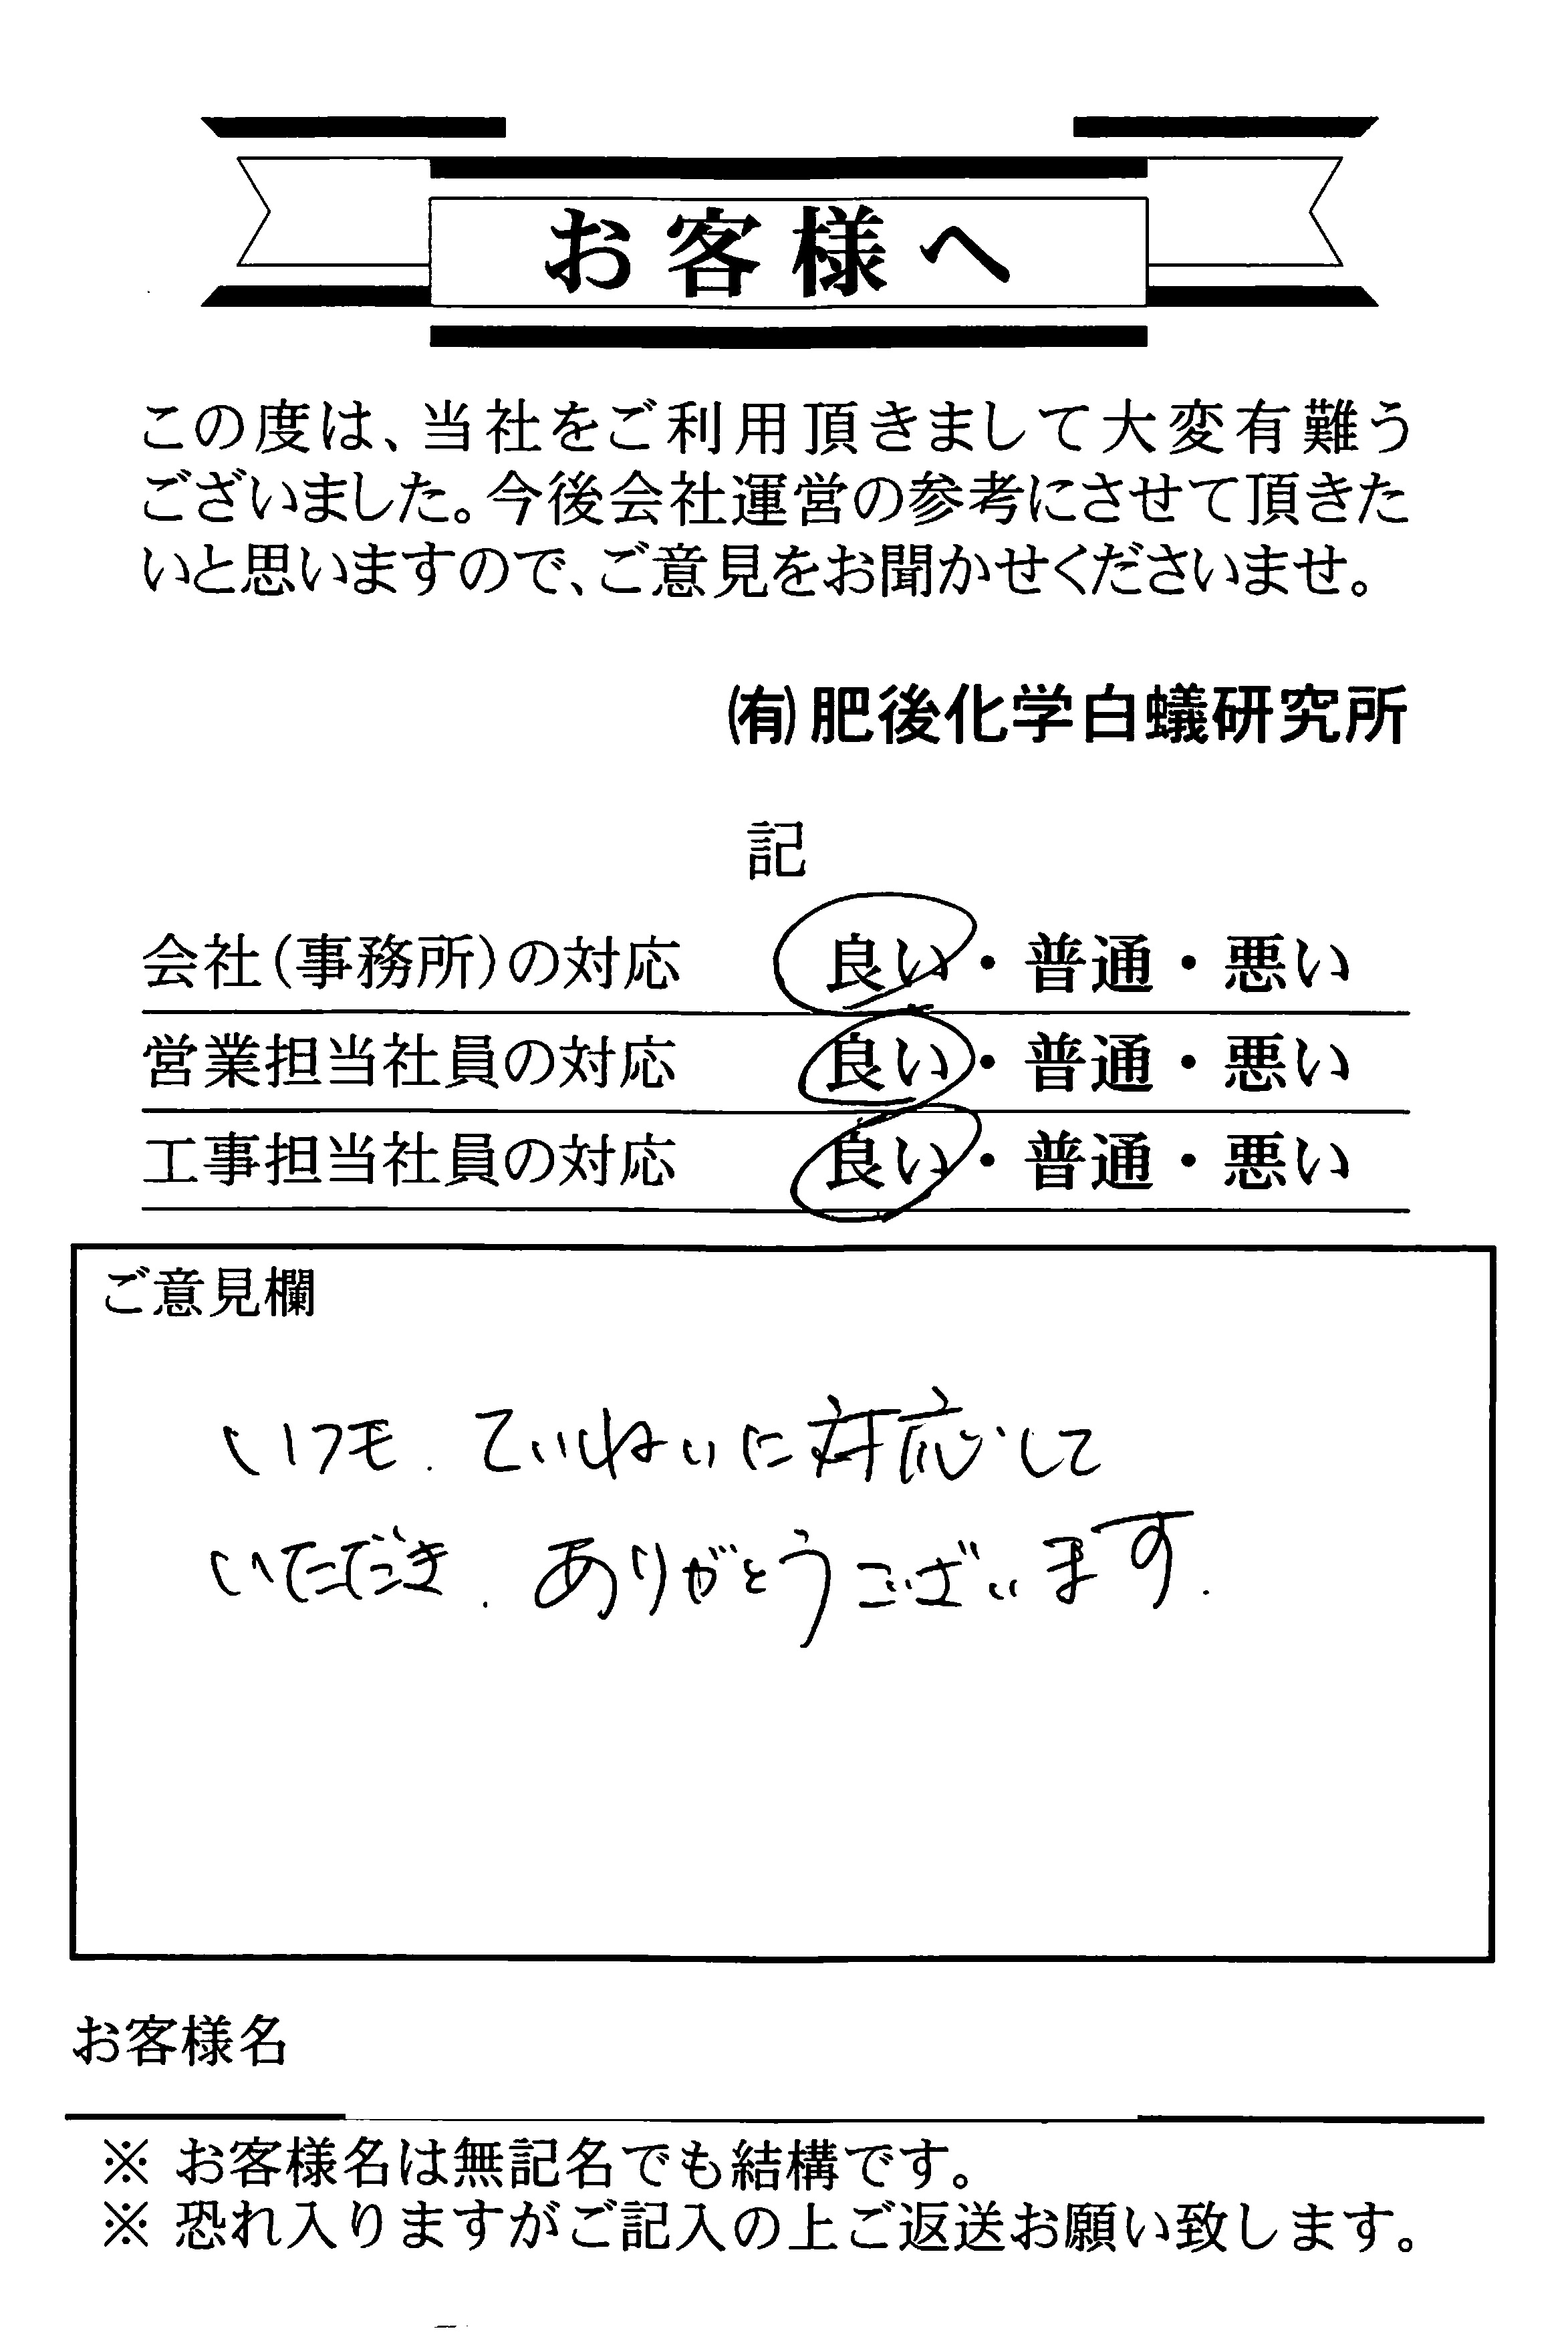 お客様へ
この度は、当社をご利用頂きまして大変有難う
ございました。今後会社運営の参考にさせて頂きた
いと思いますので、ご意見をお聞かせくださいませ。
㈲肥後化学白蟻研究所
記
会社(事務所)の対応 良い・普通・悪い
営業担当社員の対応 良い・普通・悪い
工事担当社員の対応 良い・普通・悪い
ご意見欄
いつも、ていねいに対応して
いただき、ありがとうございます。
お客様名
※ お客様名は無記名でも結構です。
※ 恐れ入りますがご記入の上ご返送お願い致します。